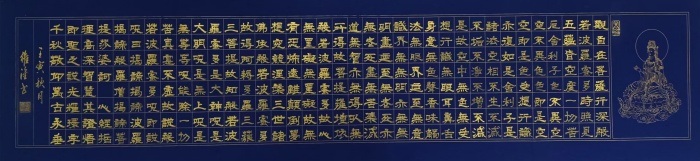 觀自在菩薩行深般
若波羅蜜多時照見
五蘊皆空度一切苦
厄舍利子色不異空
空不異色色即是空
空即是色受想行識
亦復如是舍利子是
諸法空相不生不滅
不垢不淨不增不減
是故空中無色無受
想行識無眼耳鼻舌
身意無色聲香味觸
法無眼界乃至無意
識界無無明亦無無
明盡乃至無老死亦
無老死盡無苦集滅
道無智亦無得以無
所得故菩提薩埵依
般若波羅蜜多故心
無罣礙無罣礙故無
有恐怖遠離顛倒夢
想究竟涅槃三世諸
佛依般若波羅蜜多
故得阿耨多羅三藐
三菩提故知般若波
羅蜜多是大神咒是
大明咒是無上咒是
無等等咒能除一切
苦真實不虛故說般
若波羅蜜多咒即說
咒曰揭諦揭諦般羅
揭諦般羅僧揭諦菩
提莎婆訶 心經
理高深智慧其證悟
即聖之說光輝環宇
千秋敬仰萬古永垂
壬寅秋月